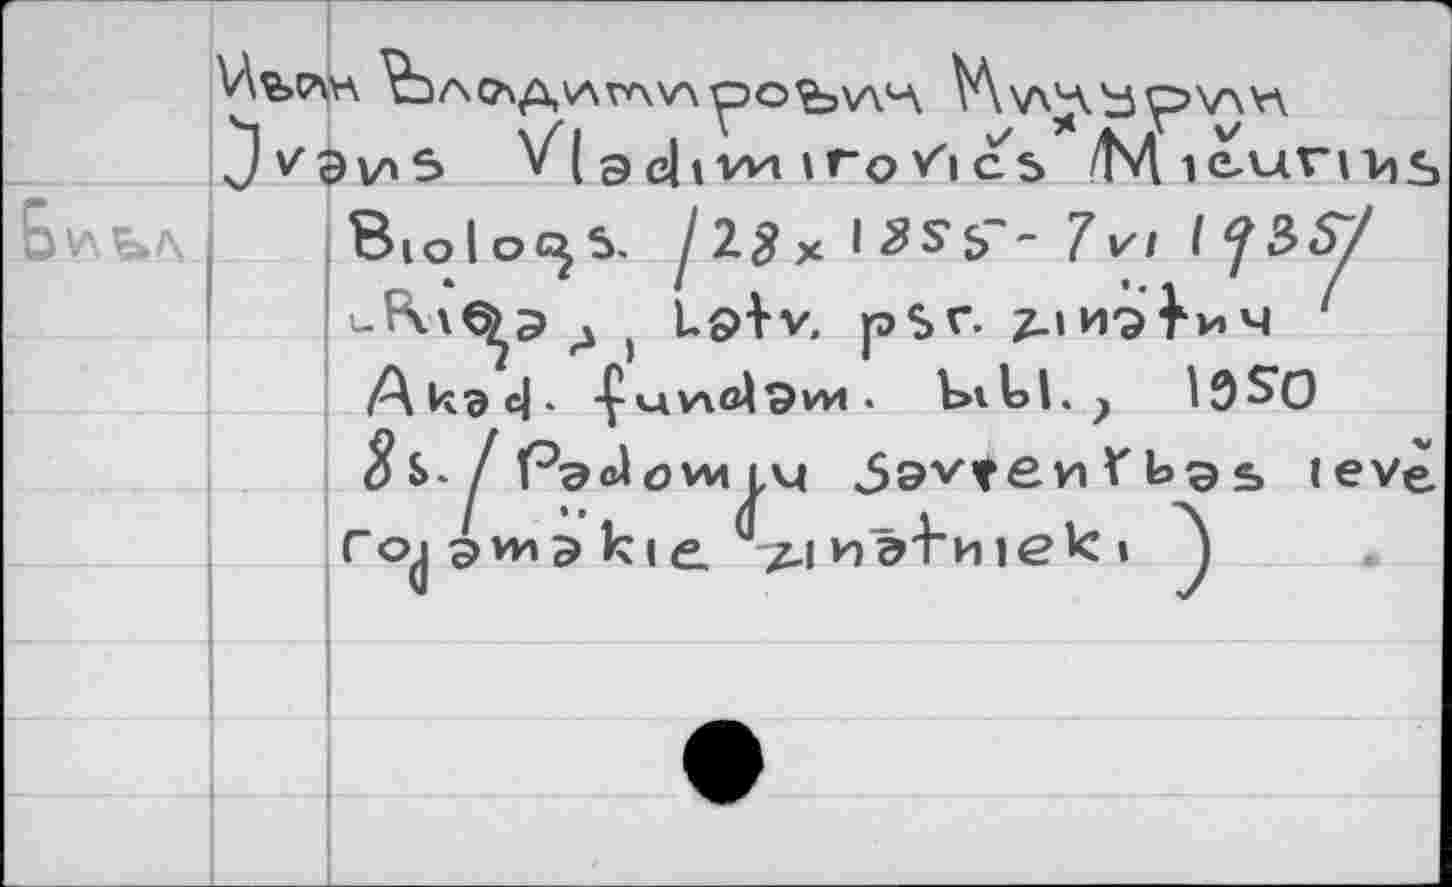 Иван Владимирович Мичурин
Ivans Vladimirovičs /Mičurins
Библ Biologs. /28 x 1855 - 7 VI 1935/
Rīgā, Latv. psr. zinātņu
Akad. fundam. bibl., 1950
8 s. / Padomju Savienības ievē
rojamākie zinātnieki )